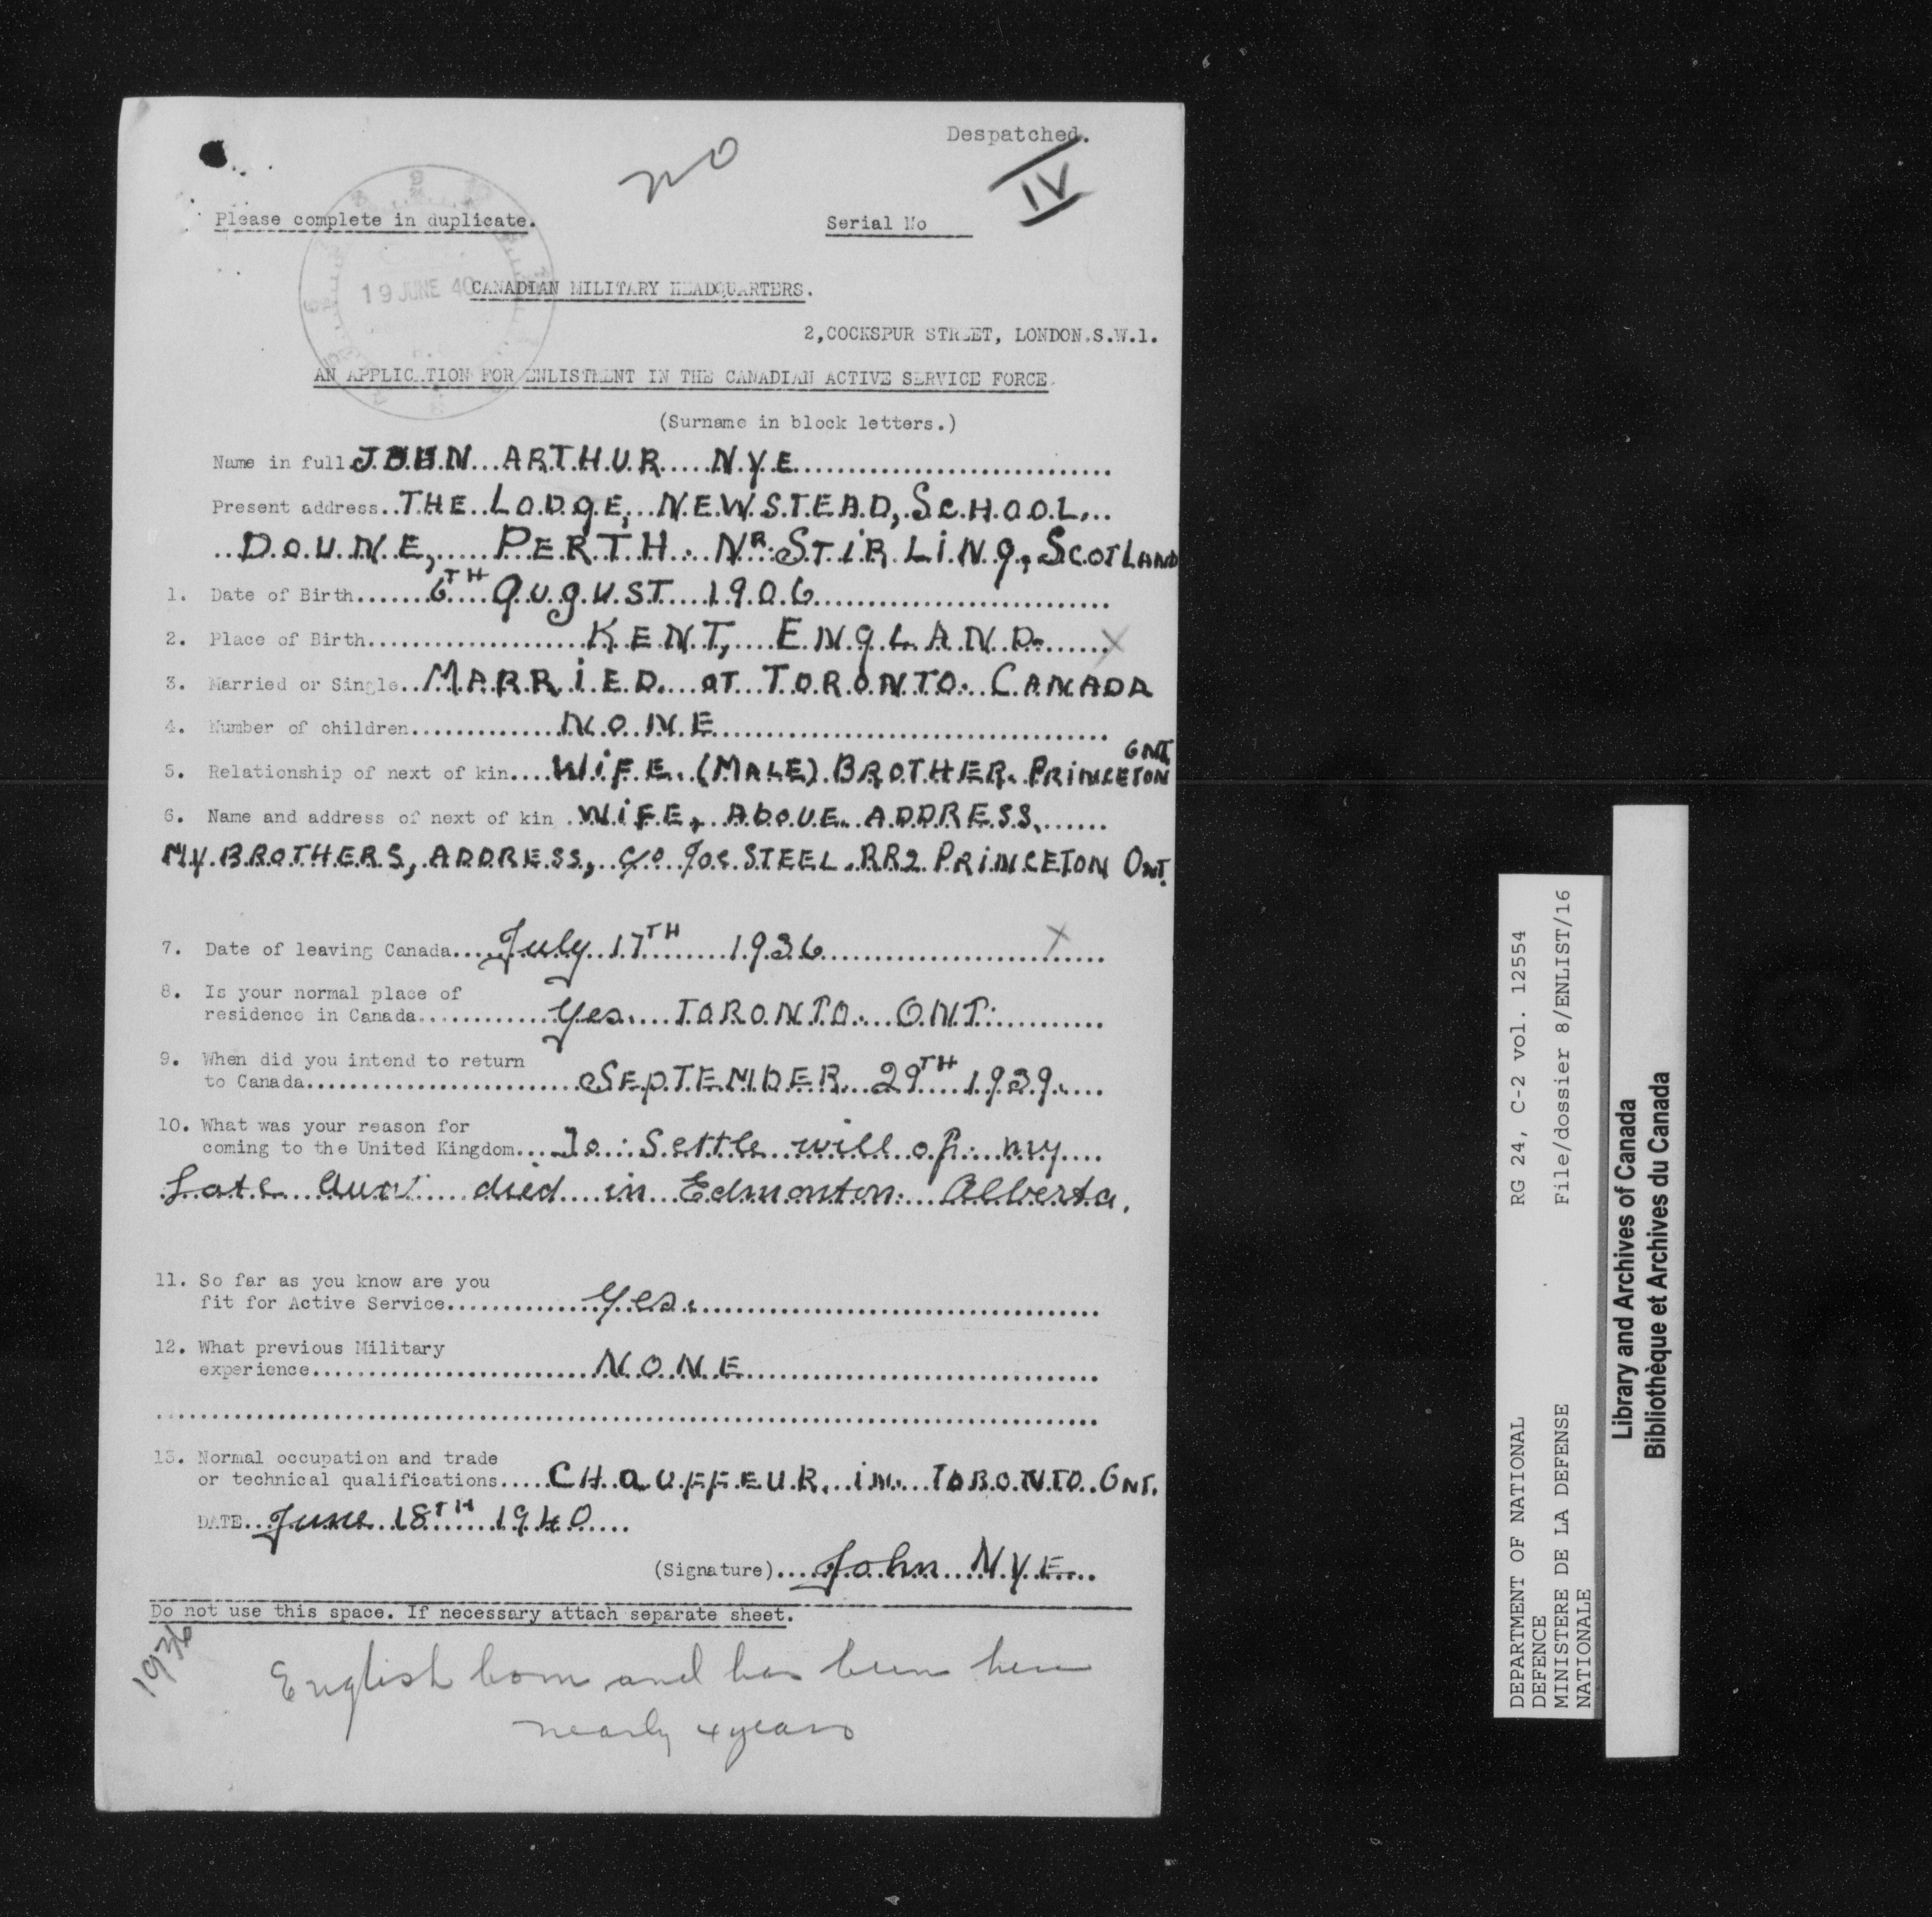 Despatched.
no
IV
Please complete in duplicate.
Serial No
19 JUNE 40
CANADIAN MILITARY HEADQUARTERS.
2,COCKSPUR STREET, LONDON.S.W.1.
AN APPLICATION FOR ENLISTMENT IN THE CANADIAN ACTIVE SERVICE FORCE.
(Surname in block letters.)
Name in full JOHN ARTHUR NYE
Present address THE LODGE, NEWSTEAD, SCHOOL,
DOUNE, PERTH. NR. STIRLING, SCOTLAND
1. Date of Birth 6TH AUGUST 1906
2. Place of Birth KENT, ENGLAND. X
3. Married or Single MARRIED. AT TORONTO. CANADA
4. Number of children NONE
ONT.
5. Relationship of next of kin WIFE. (MALE) BROTHER. PRINCETON
6. Name and address of next of kin WIFE, ABOVE ADDRESS,
MY BROTHERS, ADDRESS, C/O JOS. STEEL. RR2 PRINCETON ONT.
7. Date of leaving Canada July 17TH 1936 X
8. Is your normal place of
residence in Canada Yes. TORONTO. ONT.
9. When did you intend to return
to Canada SEPTEMBER 29TH 1939.
10. What was your reason for
coming to the United Kingdom To Settle will of my
Late Aunt died in Edmonton. Alberta.
11. So far as you know are you
fit for Active Service Yes.
12. What previous Military
experience NONE
13. Normal occupation and trade
or technical qualifications CHAUFFEUR. in. TORONTO. ONT.
DATE June 18TH 1940
(Signature) John NYE
Do not use this space. If necessary attach separate sheet.
1936
English born and has been here
nearly 4 years
DEPARTMENT OF NATIONAL RG 24, C-2 vol. 12554
DEFENCE
MINISTERE DE LA DEFENSE File/dossier 8/ENLIST/16
NATIONALE
Library and Archives of Canada
Bibliothèque et Archives du Canada